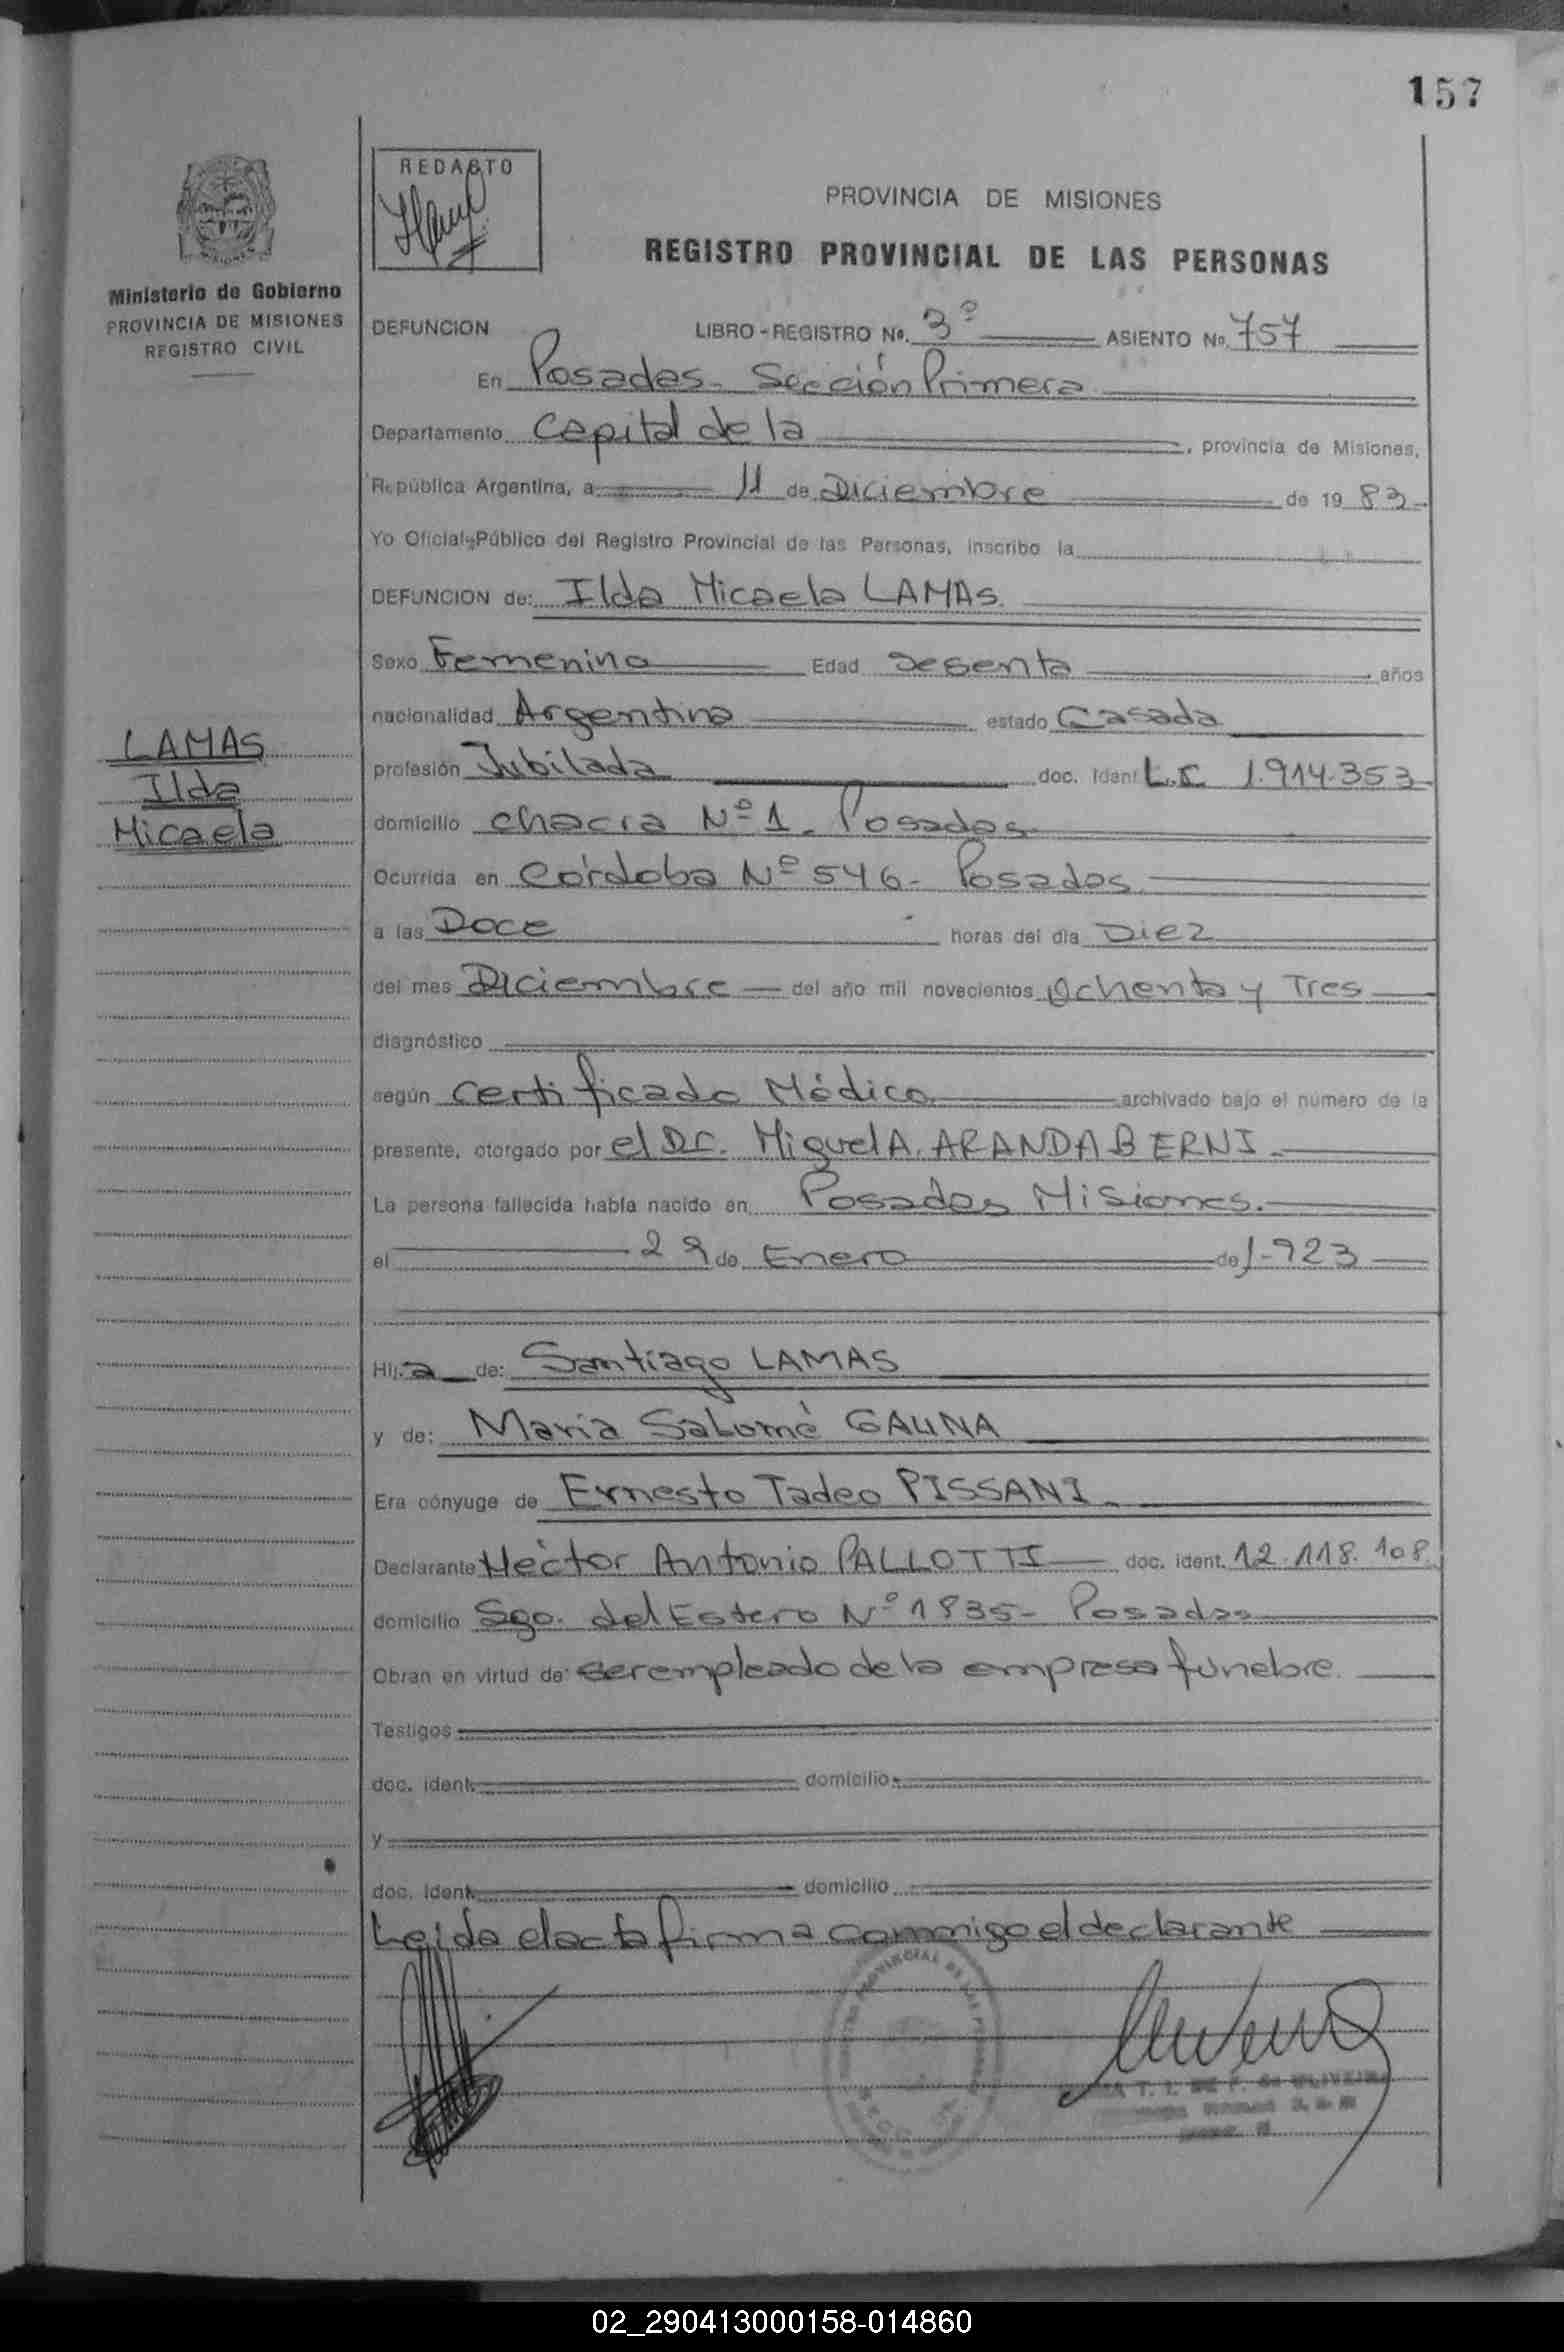 157
REDACTO
PROVINCIA DE MISIONES
REGISTRO PROVINCIAL DE LAS PERSONAS
Ministerio de Gobierno
PROVINCIA DE MISIONES
REGISTRO CIVIL
DEFUNCION LIBRO-REGISTRO Nº. 3º ASIENTO Nº 757
En Posadas- Sección Primera
Departamento Capital de la, provincia de Misiones,
República Argentina, a 11 de Diciembre de 1983-
Yo Oficial Público del Registro Provincial de las Personas, inscribo la
DEFUNCION de: Ilda Micaela LAMAS.
Sexo Femenino Edad Sesenta años
nacionalidad Argentina estado Casada
LAMAS
Ilda
Micaela
profesión Jubilada doc. Ident L.C 1.914.353
domicilio chacra Nº 1- Posadas
Ocurrida en Córdoba Nº 546- Posadas
a las Doce horas del día Diez
del mes Diciembre del año mil novecientos Ochenta y Tres
diagnóstico
según Certificado Médico archivado bajo el número de la
presente, otorgado por el Dr. Miguel A. ARANDA BERNI.
La persona fallecida había nacido en Posadas Misiones.
el 29 de Enero de 1-923
Hija de: Santiago LAMAS
y de: Maria Salomé GAUNA
Era cónyuge de Ernesto Tadeo PISSANI.
Declarante Héctor Antonio PALLOTTI doc. ident. 12.118.108
domicilio Sgo. del Estero Nº 1835- Posadas
Obran en virtud de: ser empleado de la empresa fúnebre.
Testigos
doc. ident. domicilio
y
doc. ident. domicilio
Leida el acta firma conmigo el declarante
02_290413000158-014860